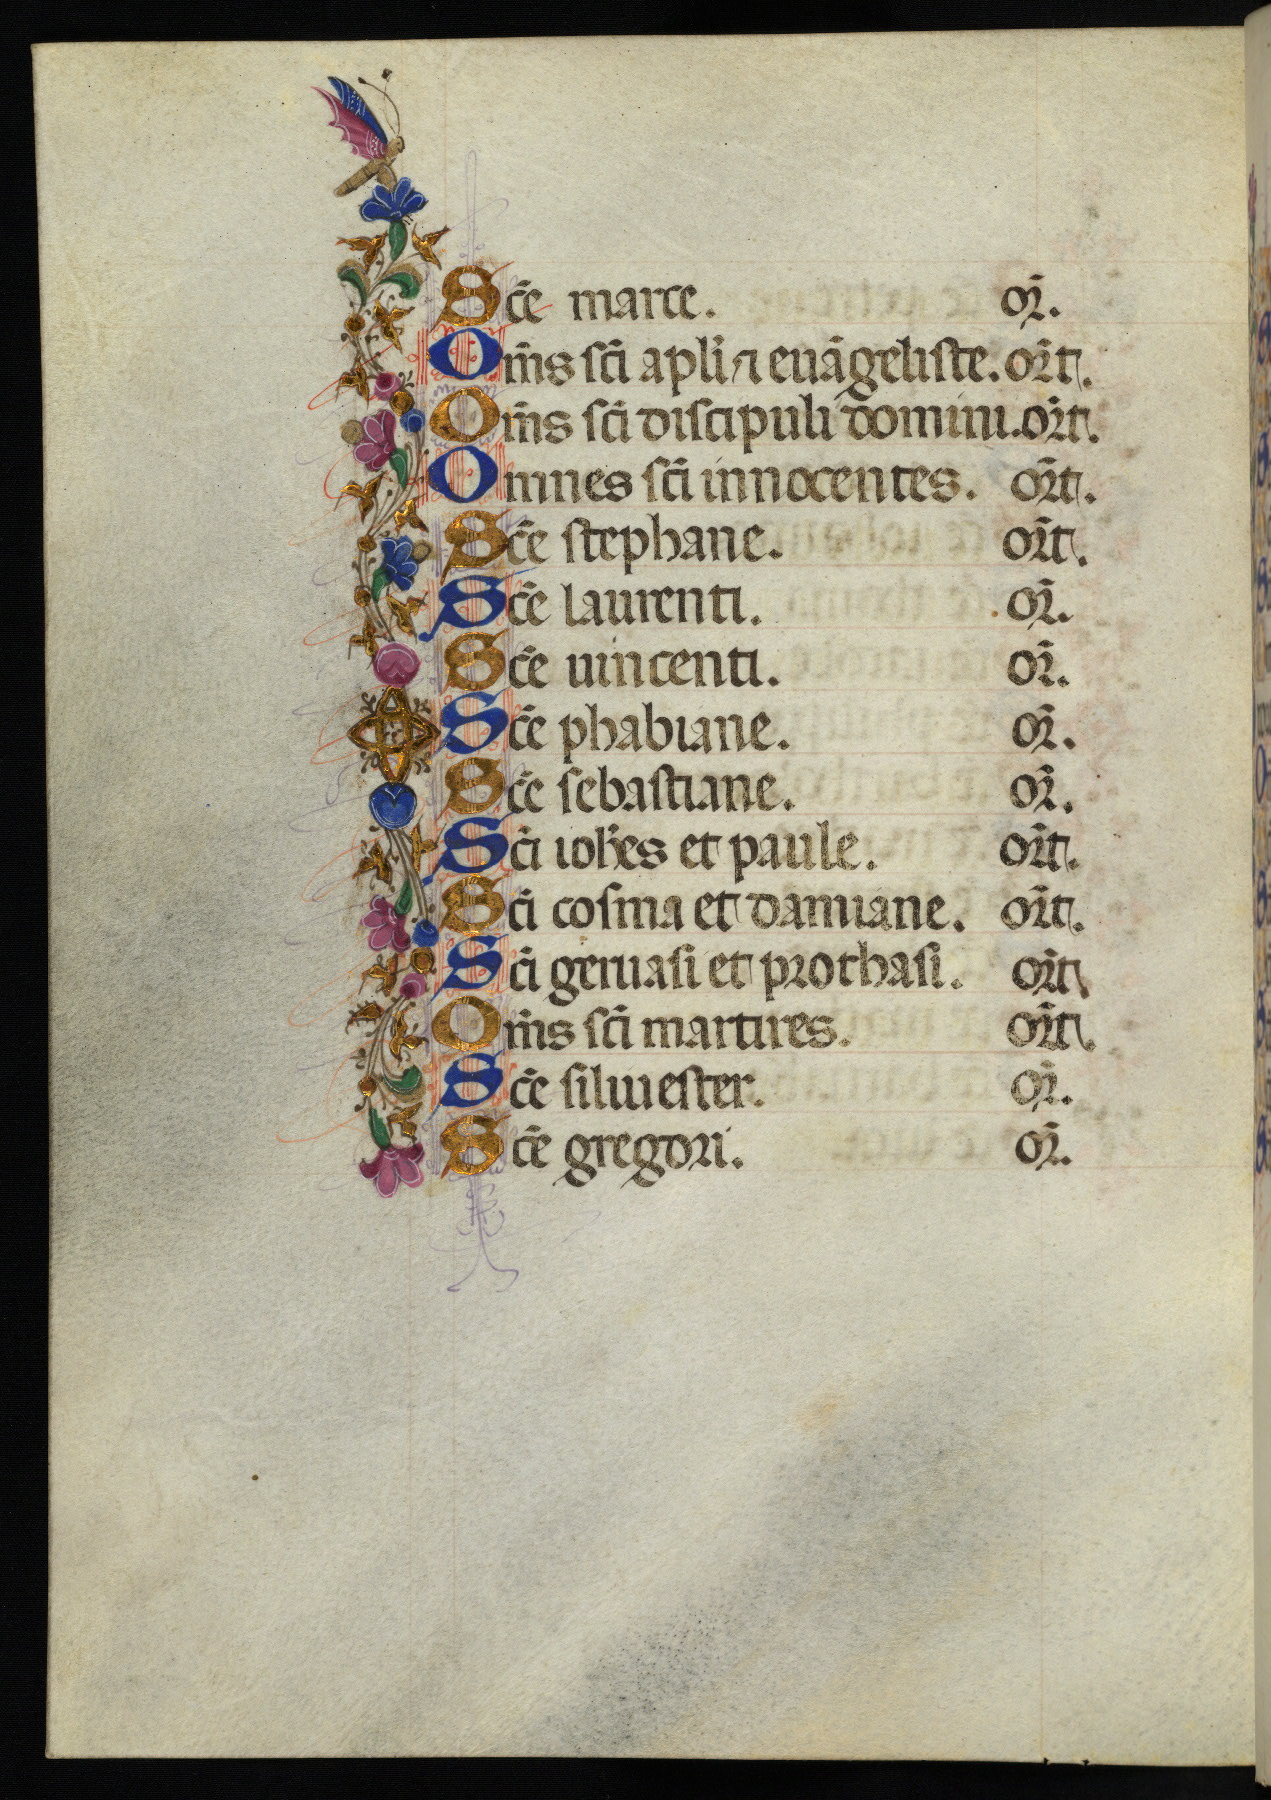 Sc̄e marce. or̄.
Om̄s sc̄i apl̄i ⁊ euāgeliste. or̄t.
Om̄s sc̄i discipuli domini. or̄t.
Omnes sc̄i innocentes. or̄t.
Sc̄e stephane. or̄t.
Sc̄e laurenti. or̄.
Sc̄e uincenti. or̄.
Sc̄e phabiane. or̄.
Sc̄e sebastiane. or̄.
Sc̄i ioh̄es et paule. or̄t.
Sc̄i cosma et damiane. or̄t.
Sc̄i geruasi et prothasi. or̄t.
Om̄s sc̄i martires. or̄t.
Sc̄e siluuester. or̄.
Sc̄e gregori. or̄.